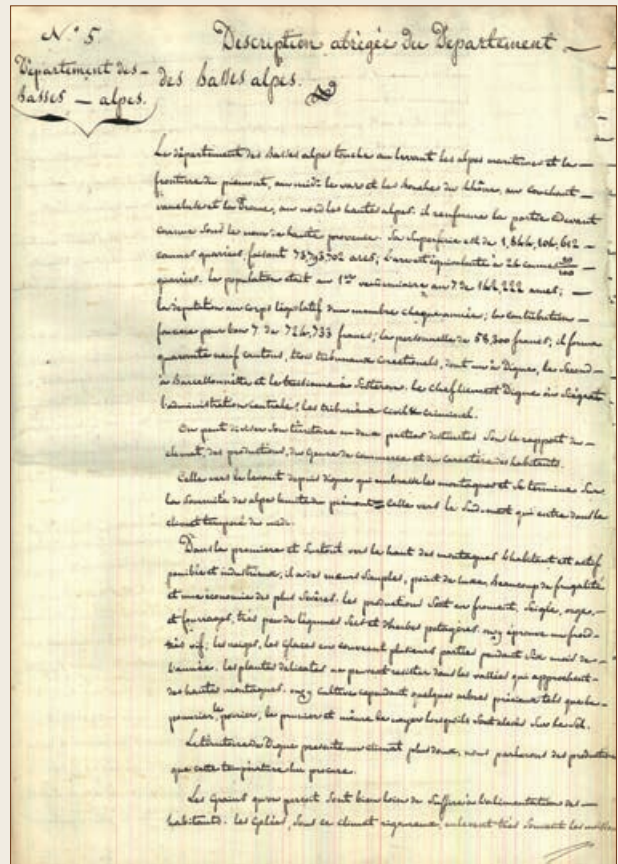 N.° 5.
Description abrégée du Département
Département des
basses - alpes.
des basses alpes.
Le département des basses alpes touche au levant les alpes maritimes et la
frontiere du piemont, au midi le vars et les bouches du Rhône, au couchant
vaucluse et la Drome, au nord les hautes alpes. il renferme la partie Devant
connue Sous le nom de haute provence. Sa Superficie est de 1,844,106,612
cannes quarrées, faisant arcs; L'are est équivalente à 26 cannes 30/100
quarrées. la population était au 1er vendemiaire an 7 de 144,222 ames;
la députation au corps législatif d'un membre chaque année; la contribution
fonciere pour l'an 7 de 724,733 francs; la personnelle de 58,300 francs; il forme
quarante neuf cantons, trois tribunaux correctionels, dont un à Digne, le Second
à Barcellonnette et le troisieme à Sisteron. le chef lieu est Digne où Siègent
l'administration centrale & les tribunaux civil & criminel.
On peut diviser Son territoire en deux parties distinctes Sous le rapport du
climat, des productions, du genre de commerce et du caractère des habitants.
Celle vers le levant depuis digne qui embrasse les montagnes et Se termine Sur
la Sommité des alpes limite du piémont Celle vers le Sud-ouest qui entre dans le
climat temperé du midi.
Dans la premiere et Surtout vers le haut des montagnes l'habitant est actif
penible et industrieux; il a des mœurs Simples, point de luxe, beaucoup de frugalité
et une économie des plus Sévères. les productions Sont en froment, Seigle, orges,
et fourrages, très peu de légumes Secs et d'herbes potageres. on y éprouve un froid
très vif; les neiges, les glaces en couvrent plusieurs parties pendant Six mois de
l'année. les plantes délicates ne peuvent resister dans les vallées qui approchent
des hautes montagnes. on y cultive cependant quelques arbres précieux tels que le
pommier, le poirier, le prunier et même le noyer lorsqu'ils Sont élevés Sur le Sol.
Le territoire de Digne presente un climat plus doux, nous parlerons des productions
que cette température lui procure.
Les Grains qu'on perçoit Sont bien loin de Suffire à l'alimentation des
habitants. les Gelées, Sous ce climat rigoureux, enlevent très Souvent les